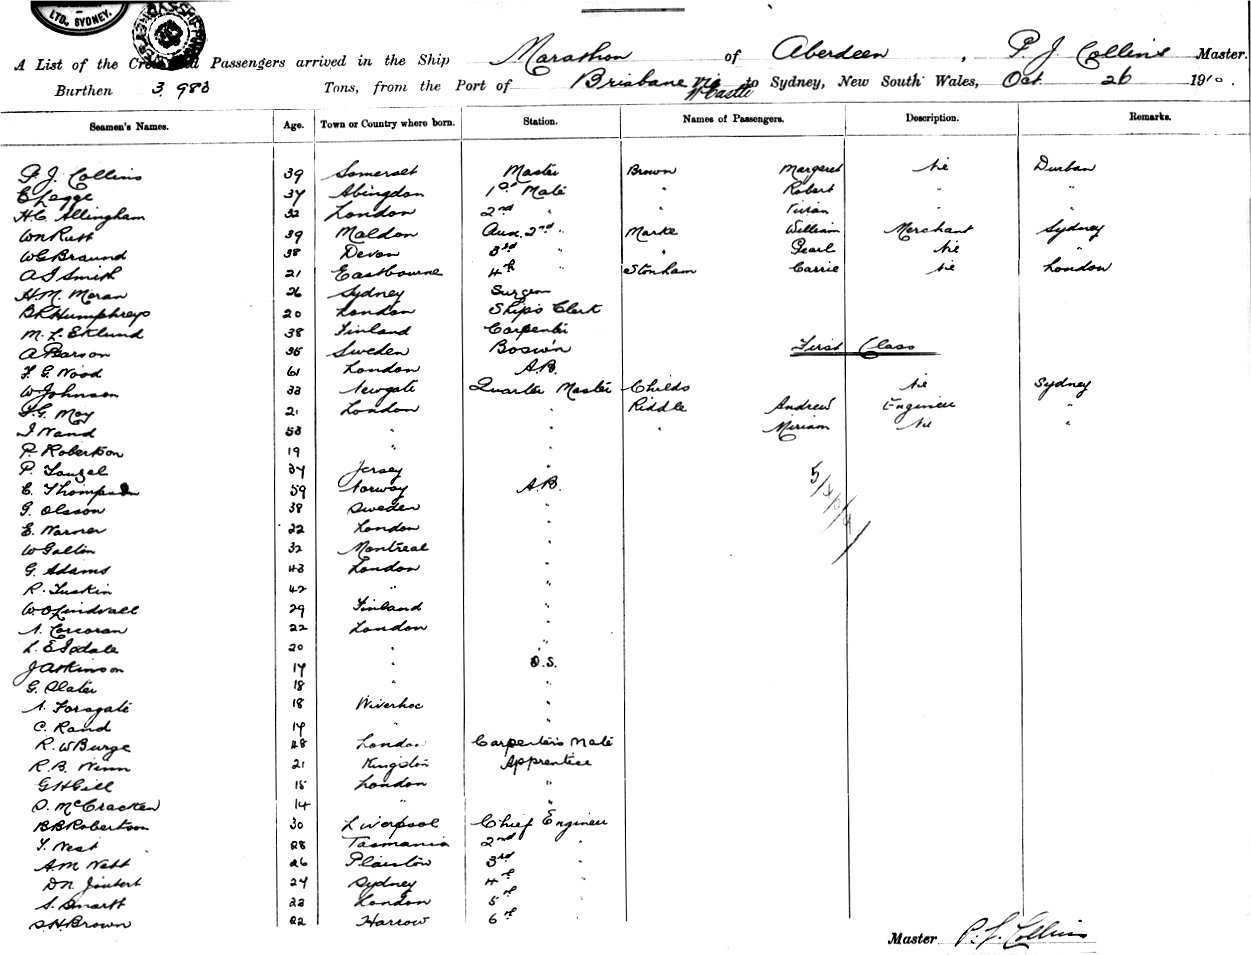 LTD., SYDNEY.
A List of the Crew and Passengers arrived in the Ship Marathon of Aberdeen, P J Collins Master.
Burthen 3,983 Tons, from the Port of Brisbane via N'Castle to Sydney, New South Wales, Oct 26 1910.
Seamen's Names. Age. Town or Country where born. Station. Names of Passengers. Description. Remarks.
P. J. Collins 39 Somerset Master Brown Margaret Nil Durban
E Legge 37 Abingdon 1st Mate " Robert " "
H. C. Allingham 32 London 2nd " " Vivian " "
Wm Rutt 39 Maldon Aux. 2nd " Marke William Merchant Sydney
W G Braund 38 Devon 3rd " " Pearl Nil "
A J Smith 21 Eastbourne 4th " Stonham Carrie Nil London
H. M. Moran 26 Sydney Surgeon
B R Humphreys 20 London Ship's Clerk
M. L. Eklund 38 Finland Carpenter
A Parson 35 Sweden Bos'w'n First Class
F. G. Wood 61 London A.B.
W Johnson 33 Newgate Quarter Master Childs Nil Sydney
F. G. May 21 London " Riddle Andrew Engineer "
J Nand 53 " " " Miriam Nil "
P. Robertson 19 " "
P. 37 Jersey "
E. Thompson 59 Norway A.B.
G. Olsson 38 Sweden "
E. Warner 22 London "
W Galtin 32 Montreal "
G. Adams 43 London "
R. Luskin 42 " "
W. O Lindvall 29 Finland "
A. Corcoran 22 London "
L. E Isdale 20 " "
J Atkinson 17 " O.S.
G. Slater 18 " "
A. Forsgate 18 Wivenhoe "
C. Rand 17 " "
R. W Burge 48 London Carpenter's Mate
R. B. Winn 21 Kingston Apprentice
G H Gill 15 London "
D. McCracken 14 " "
B B Robertson 30 Liverpool Chief Engineer
T. West 28 Tasmania 2nd "
A. M Watt 26 Plaistow 3rd "
D N Joubert 24 Sydney 4th "
S. Smartt 23 London 5th "
S. H. Brown 22 Harrow 6th
Master P. J. Collins